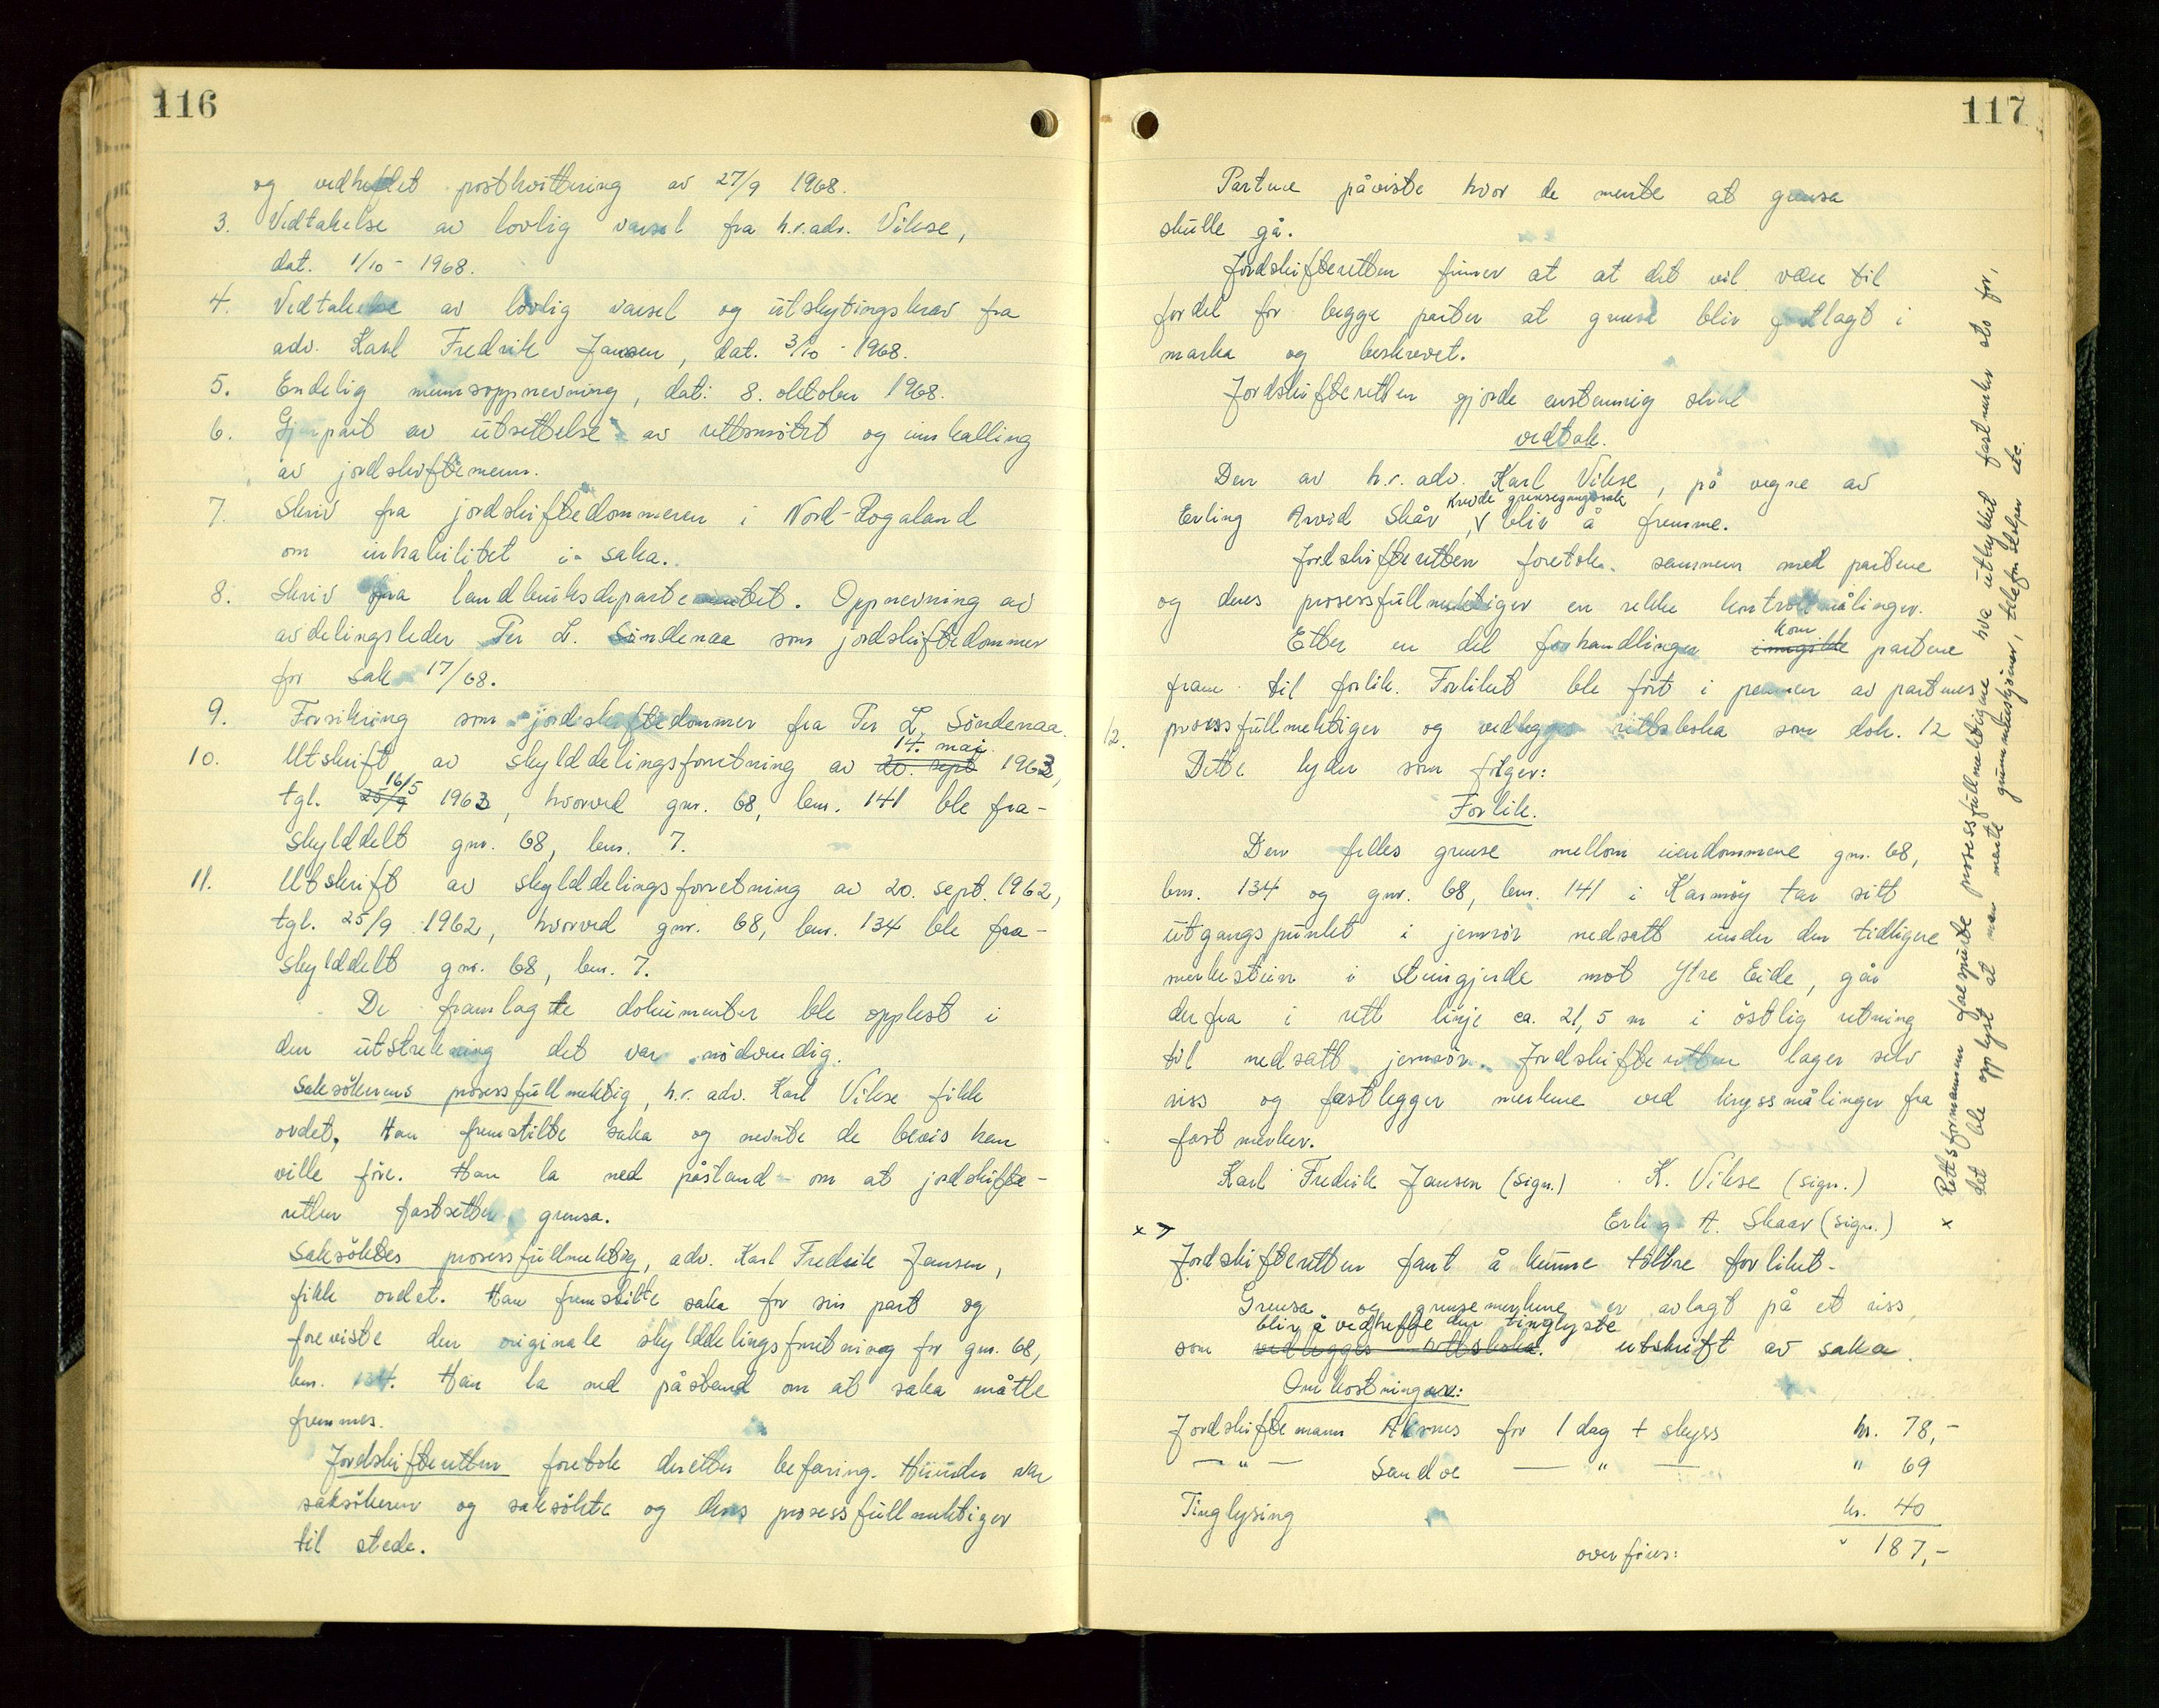 116
og vedheftet postkvittering av 27/9 1968.
3. Vedtakelse av lovlig varsel fra h.r.adv. Vikse,
dat. 1/10 - 1968.
4. Vedtakelse av lovlig varsel og utskytingskrav fra
adv. Karl Fredrik Jansen, dat. 3/10 - 1968.
5. Endelig mennsoppnevning, dat. 8. oktober 1968.
6. Gjenpart av utsettelse av rettsmøtet og innkalling
av jordskiftemenn.
7. Skriv fra jordskiftedommeren i Nord-Rogaland
om inhabilitet i saka.
8. Skriv fra landbruksdepartementet. Oppnevning av
avdelingsleder Per L. Söndenaa som jordskiftedommer
for sak 17/68.
9. Forsikring som jordskiftedommer fra Per L. Söndenaa.
14. mai
10. Utskrift av skylddelingsforretning av 20. sept 1963,
16/5
tgl. 25/9 1963, hvorved gnr. 68, bnr. 141 ble fra-
skylddelt gnr. 68, bnr. 7.
11. Utskrift av skylddelingsforretning av 20. sept. 1962,
tgl. 25/9 1962, hvorved gnr. 68, bnr. 134 ble fra-
skylddelt gnr. 68, bnr. 7.
De framlagte dokumenter ble opplest i
den utstrekning det var nödvendig.
Saksökerens prosessfullmektig, h.r. adv. Karl Vikse fikk
ordet. Han fremstilte saka og nevnte de bevis han
ville före. Han la ned påstand om at jordskifte-
retten fastsetter grensa.
Saksöktes prosessfullmektig, adv. Karl Fredrik Jansen,
fikk ordet. Han fremstilte saka for sin part og
foreviste den originale skylddelingsforretning for gnr. 68,
bnr. 134. Han la ned påstand om at saka måtte
fremmes.
Jordskifteretten foretok deretter befaring. Herunder var
saksökeren og saksökte og deres prosessfullmektiger
til stede.
117
Partene påviste hvor de mente at grensa
skulle gå.
Jordskifteretten finner at at det vil være til
fordel for begge parter at grensa blir fastlagt i
marka og beskrevet.
Jordskifteretten gjorde enstemmig slikt
vedtak.
Den av h.r. adv. Karl Vikse, på vegne av
krevde grensegangssak
Erling Arvid Skår, v blir å fremme.
Jordskifteretten foretok sammen med partene
og deres prosessfullmektiger en rekke kontrollmålinger.
kom
Etter en del forhandlinger inngikk partene
fram til forlik. Forliket ble fört i pennen av partenes
12. prosessfullmektiger og vedlegges rettsboka som dok. 12
Dette lyder som fölger:
Forlik.
Den felles grense mellom eiendommene gnr. 68,
bnr. 134 og gnr. 68, bnr. 141 i Karmöy tar sitt
utgangspunkt i jernrör nedsatt under den tidligere
merkestein i steingjerde mot Ytre Eide, går
derfra i rett linje ca. 21,5 m i östlig retning
til nedsatt jernrör. Jordskifteretten lager selv
riss og fastlegger merkene ved kryssmålinger fra
fastmerker.
Karl Fredrik Jansen (sign.) K. Vikse (sign.)
Erling A. Skaar (sign.)
x >
Jordskifteretten fant å kunne tiltre forliket.
Grensa og grensemerkene er avlagt på et riss
blir å vedhefte den tinglyste
som vedlegges rettsboka. utskrift av saka.
Omkostninger:
Jordskiftemann Aksnes for 1 dag + skyss kr. 78,-
— " — Sandoe — " — " 69
Tinglysing kr. 40
overföres: " 187,-
x Rettsformannen forespurte prosessfullmektigene hva uttrykket fastmerker sto for,
det ble opplyst at man mente grunnmurshjörner, telefonstolper etc.